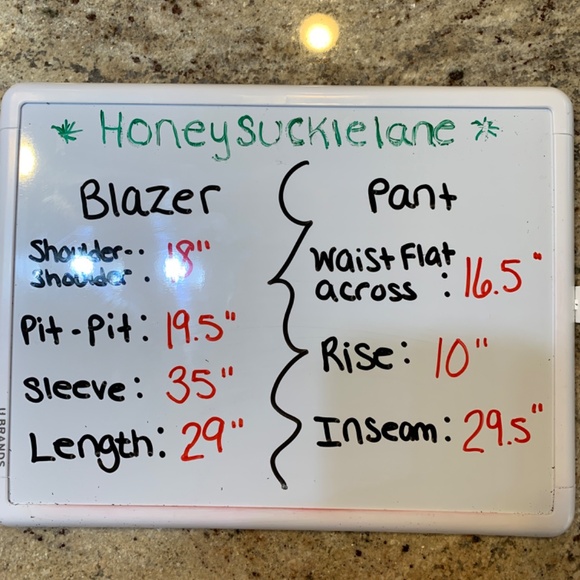 * Honeysucklelane *
Blazer
Shoulder--
Shoulder . 18"
Pit-Pit: 19.5"
Sleeve: 35"
Length: 29"
Pant
Waist Flat
across : 16.5"
Rise: 10"
Inseam: 29.5"
U BRANDS